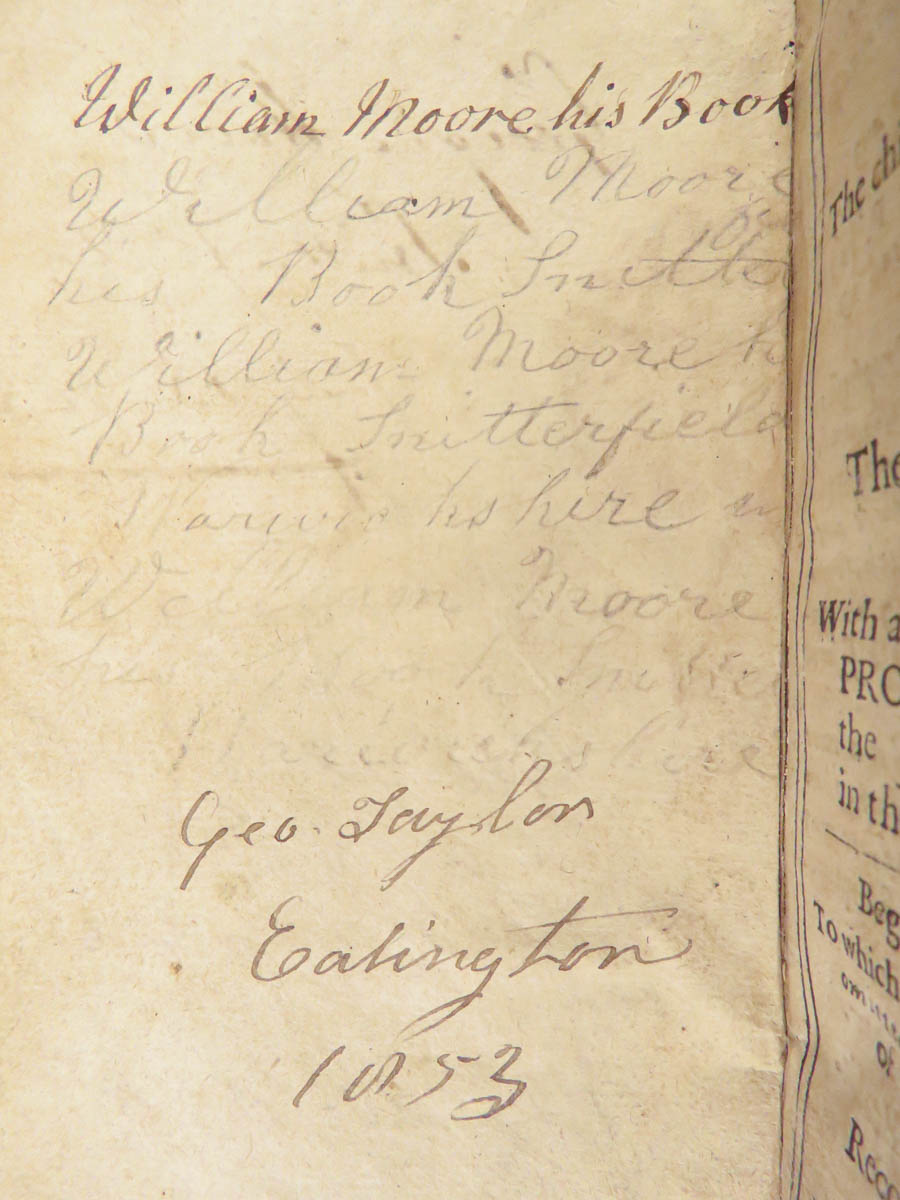 William Moore his Book
William Moore
his Book Snitte
William Moore h
Book Snitterfield
Warwickshire
William Moore
his Book Snitte
Warwickshire
Geo. Taylor
Eatington
1853
The ch
The
With a
PRO
the
in th
Beg
To which
om
Of
Reco